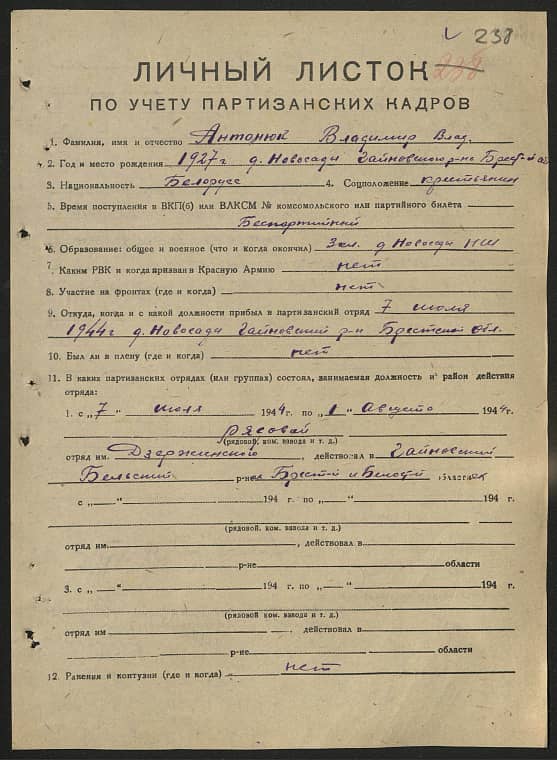 238
ЛИЧНЫЙ ЛИСТОК 238
ПО УЧЕТУ ПАРТИЗАНСКИХ КАДРОВ
1. Фамилия, имя и отчество Антонюк Владимир Влад.
2. Год и место рождения 1927г д. Новосади Гайновского р-на Брест-й об
3. Национальность Белорусс 4. Соцположение крестьянин
5. Время поступления в ВКП(б) или ВЛКСМ № комсомольского или партийного билета
Беспартийный
6. Образование: общее и военное (что и когда окончил) 3 кл. д Новосади НШ
7. Каким РВК и когда призван в Красную Армию нет
8. Участие на фронтах (где и когда) нет
9. Откуда, когда и с какой должности прибыл в партизанский отряд 7 июля
1944г д. Новосади Гайновский р-н Брестской обл.
10. Был ли в плену (где и когда) нет
11. В каких партизанских отрядах (или группах) состоял, занимаемая должность и район действия
отряда:
1. с „7" июля 1944 г. по „1" Августа 1944 г.
рядовой
(рядовой, ком. взвода и т. д.)
отряд им. Дзержинского, действовал в Гайновский
Бельский р-не Брест-й и Белост-й области
с „ " 194 г. по „ " 194 г.
(рядовой, ком. взвода и т. д.)
отряд им. , действовал в
р-не области
3. с „ " 194 г. по „ " 194 г.
(рядовой ком. взвода и т. д.)
отряд им , действовал в
р-не области
12. Ранения и контузии (где и когда) нет